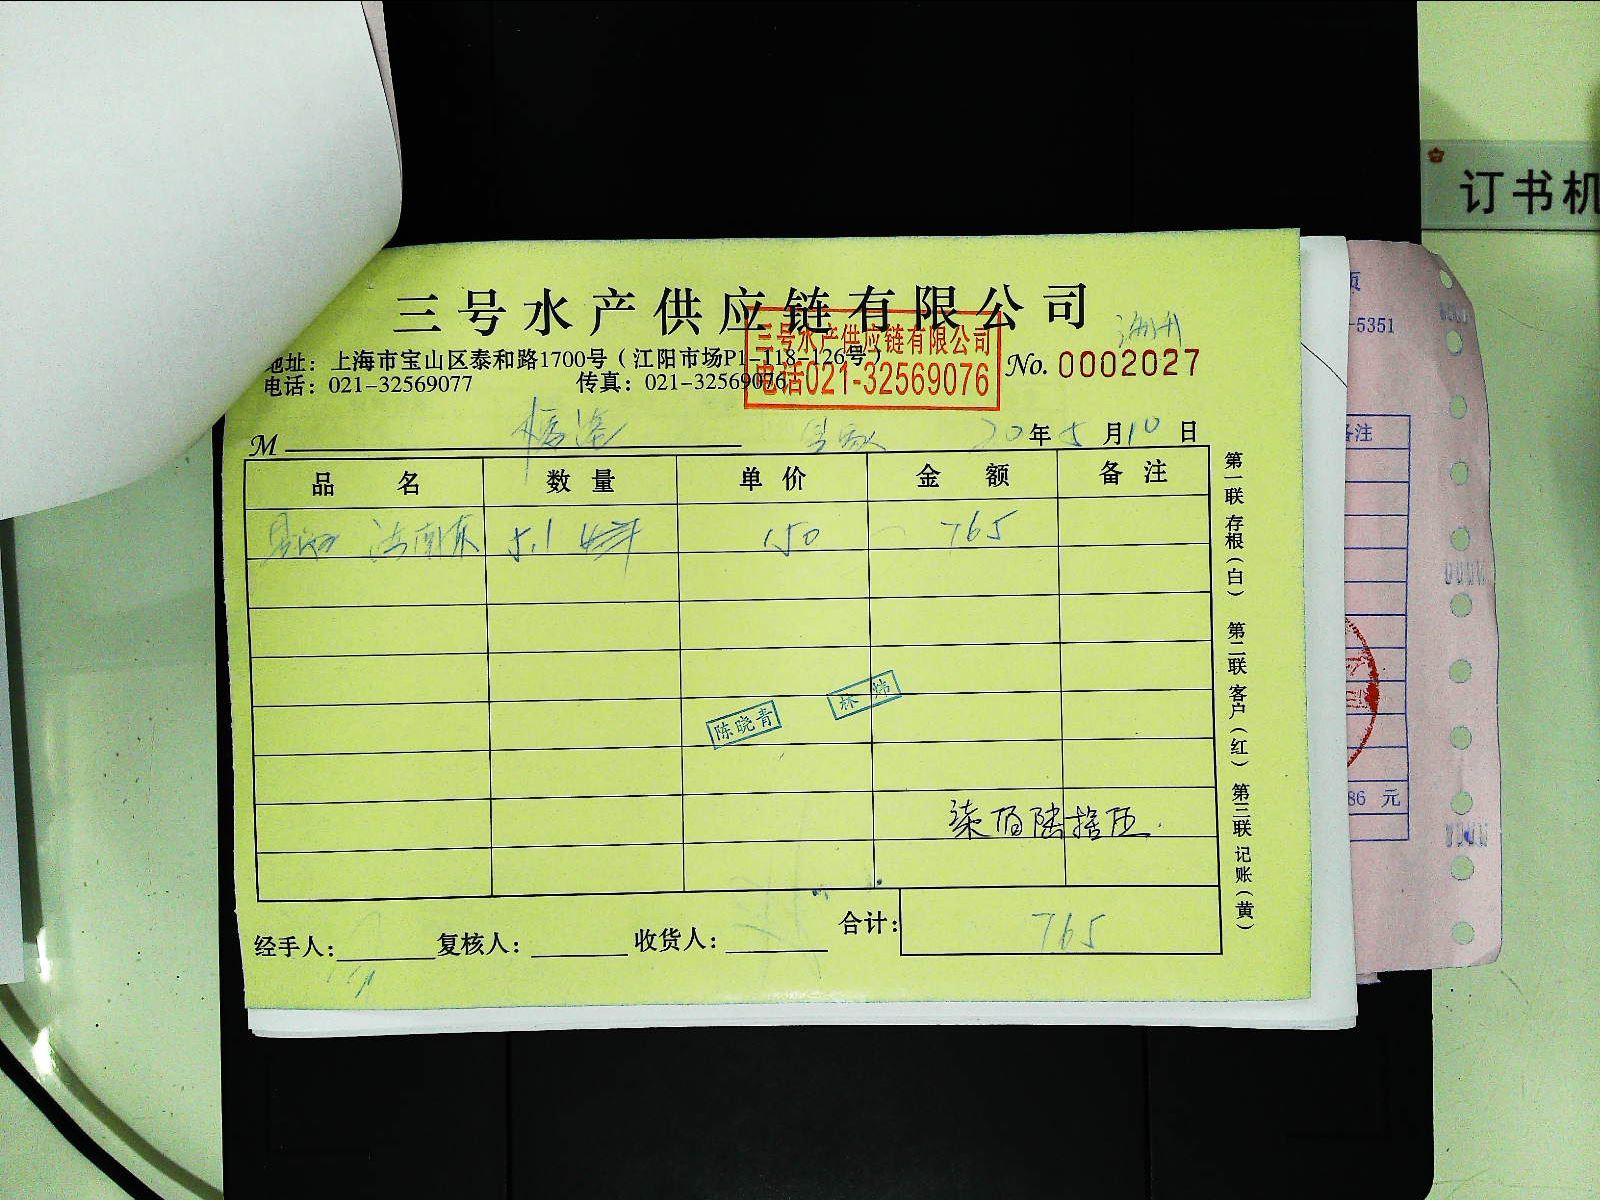 订书机
三号水产供应链有限公司
三号水产供应链有限公司
电话021-32569076
地址：上海市宝山区泰和路1700号（江阳市场P1-118-126号）
电话：021-32569077 传真：021-32569076
No. 0002027
M
20年5月10日
品名 数量 单价 金额 备注
5.1 150 765
陈晓青
林炜
柒佰陆拾伍
合计： 765
经手人： 复核人： 收货人：
第一联 存根（白） 第二联 客户（红） 第三联 记账（黄）
页
-5351
备注
86 元